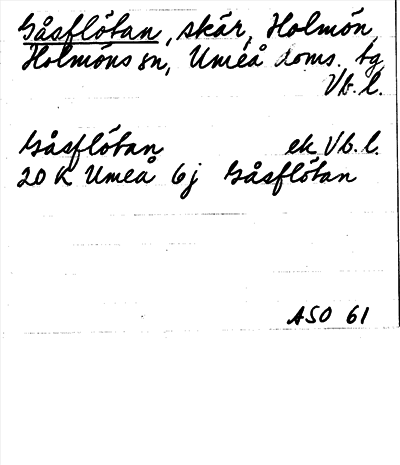 Gåsflötan, skär, Holmön,
Holmöns sn, Umeå doms. tg
Vb. l.
Gåsflötan ek Vb. l.
20 K Umeå 6j Gåsflötan
ASO 61